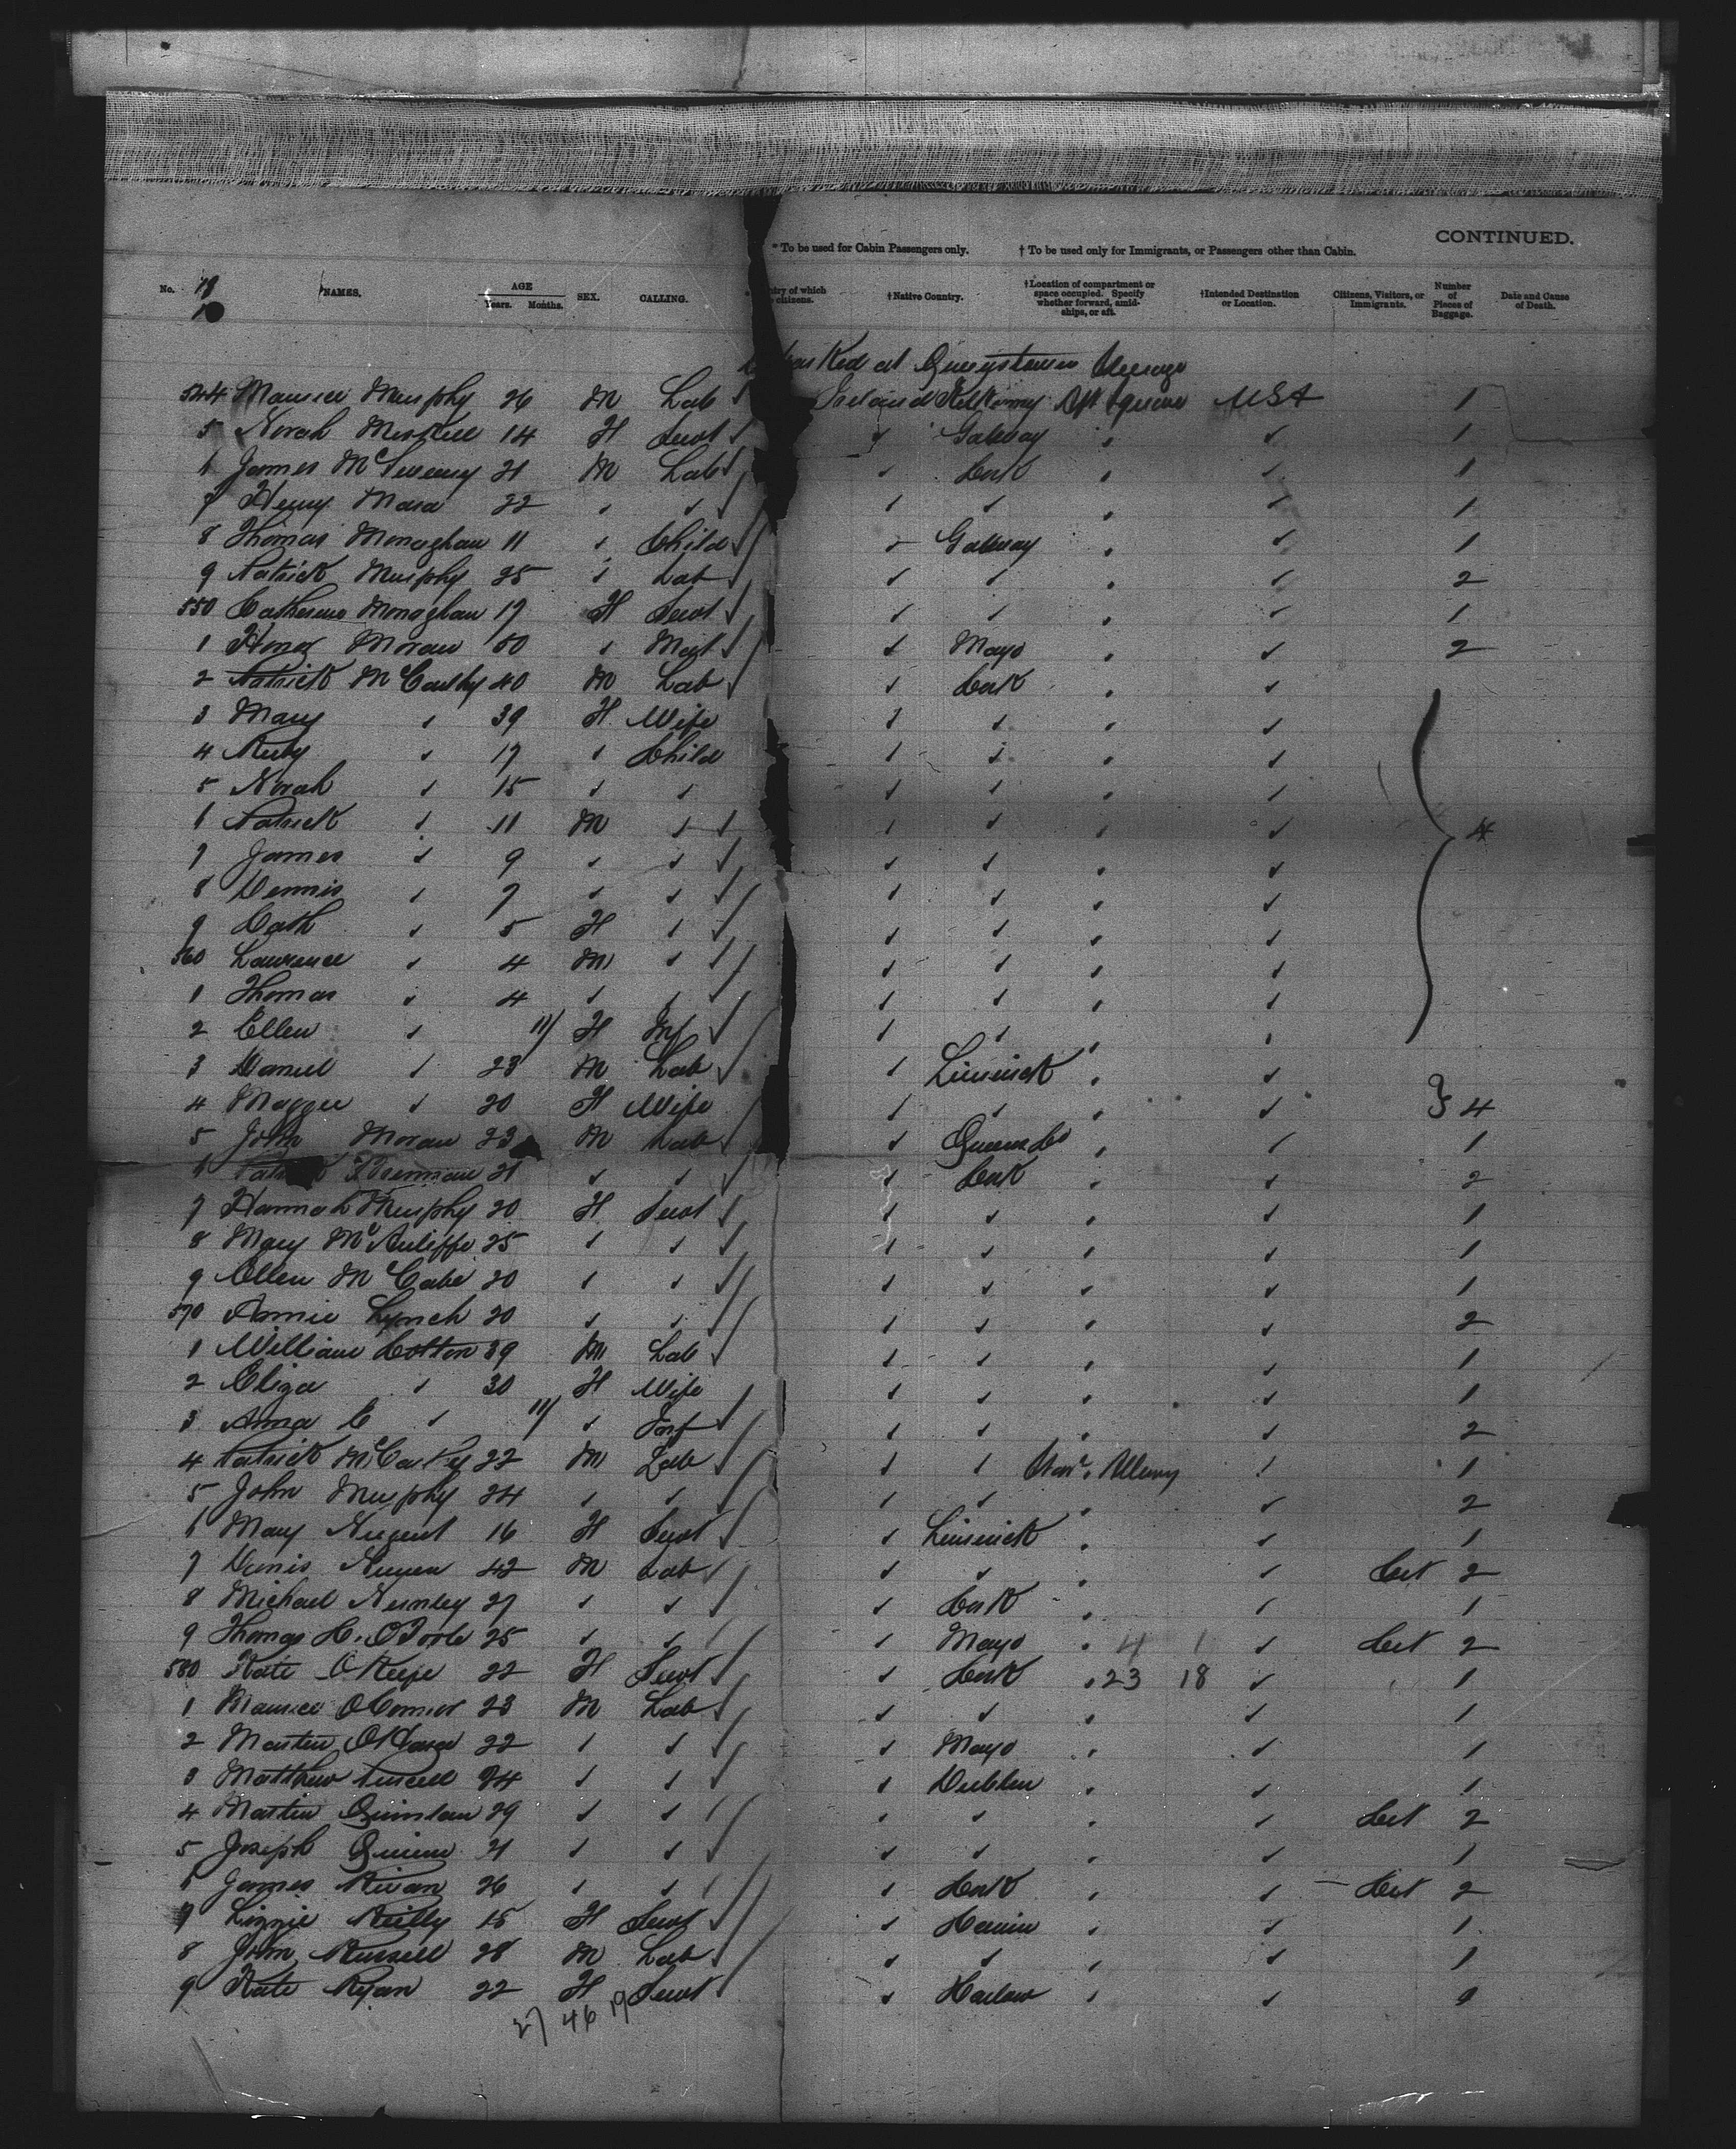 CONTINUED.
* To be used for Cabin Passengers only. † To be used only for Immigrants, or Passengers other than Cabin.
No. NAMES. AGE Years. Months. SEX. CALLING. ntry of which citizens. †Native Country. †Location of compartment or space occupied. Specify whether forward, amidships, or aft. †Intended Destination or Location. Citizens, Visitors, or Immigrants. Number of Pieces of Baggage. Date and Cause of Death.
ked at Queenstown
544 Maurice Murphy 26 M Lab Ireland Kilkenny USA 1
5 Norah 14 F Servt " Galway " " 1
6 James McSweeny 21 M Lab " Cork " " 1
7 Henry Mara 22 " " " " " " 1
8 Thomas Monaghan 11 " Child " Galway " " 1
9 Patrick Murphy 25 " Lab " " " " 2
550 Catherine Monaghan 17 F Servt " " " " 1
1 Honor Moran 50 " Mat " Mayo " " 2
2 Patrick McCarthy 40 M Lab " Cork " "
3 Mary " 39 F Wife " " " "
4 " 17 " Child " " " "
5 Norah " 15 " " " " " "
6 Patrick " 11 M " " " " " 4
7 James " 9 " " " " " "
8 Dennis " 7 " " " " " "
9 Cath " 5 F " " " " "
560 Lawrence " 4 M " " " " "
1 Thomas " 4 " " " " " "
2 Ellen " 11/ F Inf " " " "
3 Daniel " 23 M Lab " Limerick " "
4 Maggie " 20 F Wife " " " " 4
5 John Moran 23 M Lab " Queens Co " " 1
6 21 " " " Cork " " 2
7 Hannah Murphy 20 F Servt " " " " 1
8 Mary McAuliffe 25 " " " " " " 1
9 Ellen McCabe 20 " " " " " " 1
570 Annie Lynch 20 " " " " " " 2
1 William Cotton 39 M Lab " " " " 1
2 Eliza " 30 F Wife " " " " 1
3 Anna C " 11/ " Inf " " " " 2
4 Patrick 22 M Lab " " " 1
5 John Murphy 24 " " " " " " 2
6 Mary Nugent 16 F Servt " Limerick " " 1
7 Denis 42 M Lab " " " " Cit 2
8 Michael 27 " " " Cork " " 1
9 Thomas H. O'Toole 25 " " " Mayo " 4 1 " Cit 2
580 Kate O'Keefe 22 F Servt " Cork " 23 18 " 1
1 Maurice O'Connor 23 M Lab " " " " 1
2 Martin O'Hara 22 " " " Mayo " " 1
3 Matthew Purcell 24 " " " Dublin " " 1
4 Martin Quinlan 29 " " " " " " Cit 2
5 Joseph Quinn 21 " " " " " " 1
6 James 26 " " " Cork " " Cit 2
7 Lizzie Reilly 15 F Servt " " " 1
8 John Russell 28 M Lab " " " " 1
9 Kate Ryan 22 F Servt " " "
27 46 19